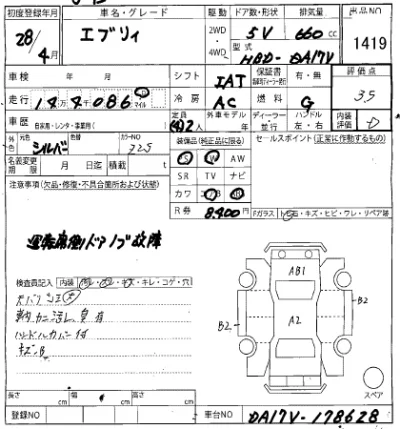 初度登録年月 車名・グレード 駆動 ドア数・形状 排気量 出品NO
28/4月 エブリィ 2WD 4WD 5V 660cc 1419
型式 HBD-DA17V
車検 年 月 シフト IAT 保証書 有・無 評価点
走行 14万4086 マイル 冷房 AC 燃料 G 3.5
車歴 自家用・レンタ・事業用( ) 定員 人 外車モデル 年 ディーラー 並行 ハンドル 左・右 内装評価 D
外色 元色 シルバー 色替 カラーNO Z2S 装備(純正品に限る) セールスポイント(正常に作動するもの)
名義変更期限 月 日迄 積載 t SR TV ナビ
注意事項(欠品・修復・不具合箇所および状態) カワ
R券 8,400円 Fガラス トビ石・キズ・ヒビ・ワレ・リペア跡
運転席側ドアノブ故障
AB1
検査員記入 内装 キズ・キレ・コゲ・穴
A2
B2
B2
ハンドルカバー付
キズB
スペア
長さ cm 幅 cm 高さ cm
登録NO 車台NO DA17V-178628